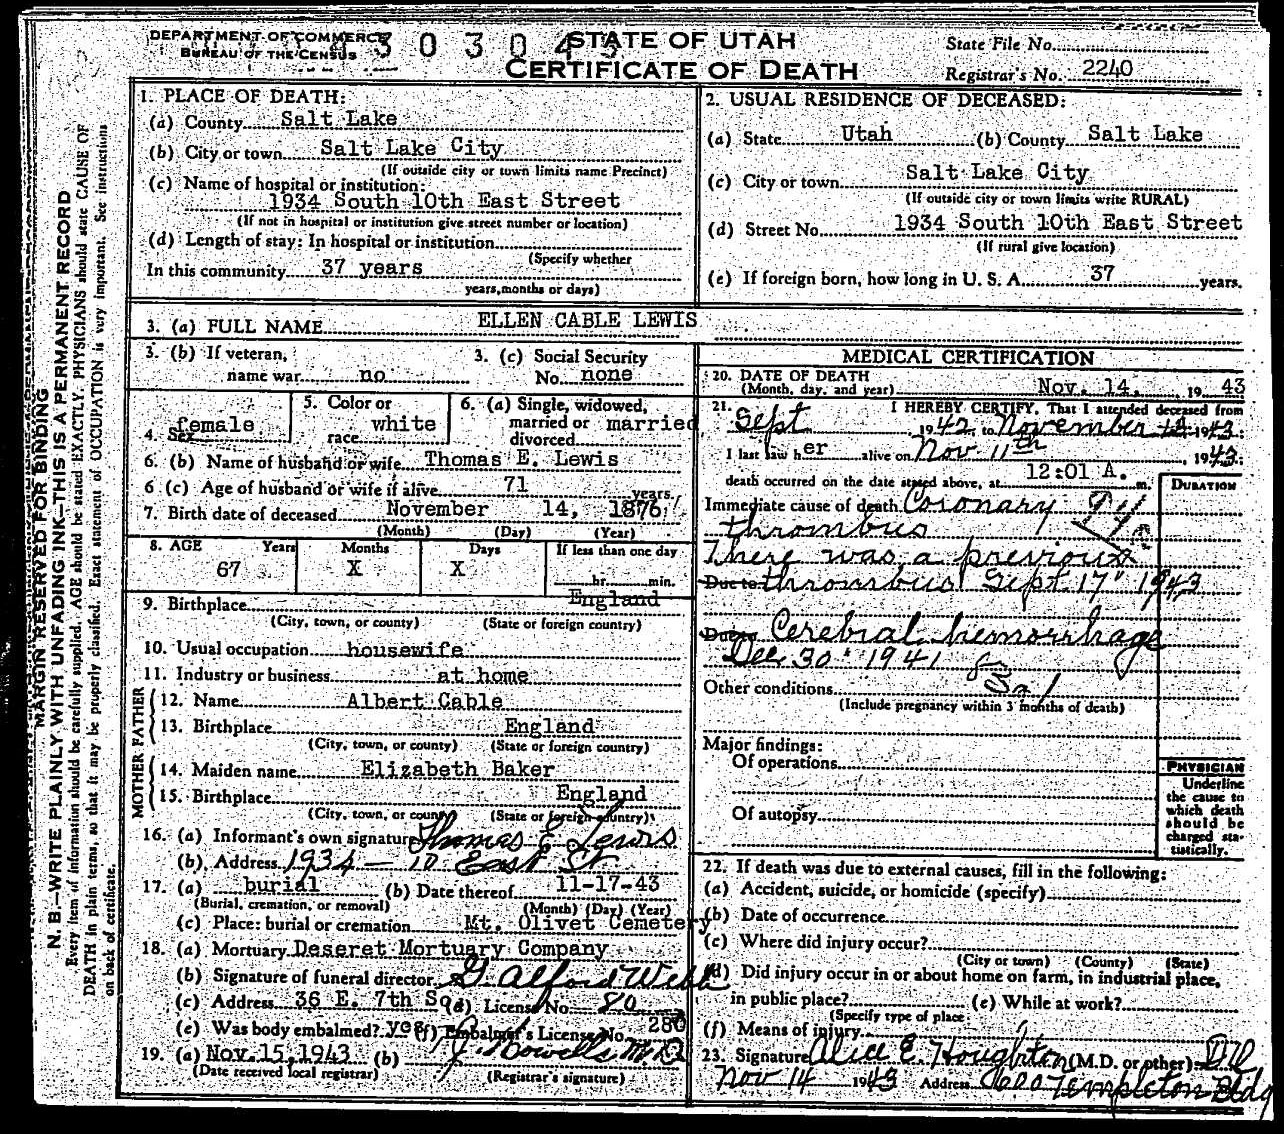 DEPARTMENT OF COMMERCE
BUREAU OF THE CENSUS
STATE OF UTAH
CERTIFICATE OF DEATH
State File No.
Registrar's No. 2240
1. PLACE OF DEATH:
(a) County Salt Lake
(b) City or town Salt Lake City
(If outside city or town limits name Precinct)
(c) Name of hospital or institution:
1934 South 10th East Street
(If not in hospital or institution give street number or location)
(d) Length of stay: In hospital or institution
(Specify whether
In this community 37 years
years, months or days)
2. USUAL RESIDENCE OF DECEASED:
(a) State Utah (b) County Salt Lake
(c) City or town Salt Lake City
(If outside city or town limits write RURAL)
(d) Street No. 1934 South 10th East Street
(If rural give location)
(e) If foreign born, how long in U. S. A. 37 years.
3. (a) FULL NAME ELLEN CABLE LEWIS
3. (b) If veteran,
name war no
3. (c) Social Security
No. none
4. Sex female
5. Color or
race white
6. (a) Single, widowed,
married or married
divorced
6. (b) Name of husband or wife Thomas E. Lewis
6 (c) Age of husband or wife if alive 71 years.
7. Birth date of deceased November 14, 1876
(Month) (Day) (Year)
8. AGE Years Months Days If less than one day
67 X X hr. min.
9. Birthplace England
(City, town, or county) (State or foreign country)
10. Usual occupation housewife
11. Industry or business at home
FATHER
12. Name Albert Cable
13. Birthplace England
(City, town, or county) (State or foreign country)
MOTHER
14. Maiden name Elizabeth Baker
15. Birthplace England
(City, town, or county) (State or foreign country)
16. (a) Informant's own signature Thomas E Lewis
(b) Address 1934 - 10 East St
17. (a) burial (b) Date thereof 11-17-43
(Burial, cremation, or removal) (Month) (Day) (Year)
(c) Place: burial or cremation Mt. Olivet Cemetery
18. (a) Mortuary Deseret Mortuary Company
(b) Signature of funeral director G. Alford Webb
(c) Address 36 E. 7th So. (d) License No. 80
(e) Was body embalmed? yes (f) Embalmer's License No. 280
19. (a) Nov. 15, 1943 (b)
(Date received local registrar) (Registrar's signature)
MEDICAL CERTIFICATION
20. DATE OF DEATH
(Month, day, and year) Nov. 14, 1943
21. I HEREBY CERTIFY, That I attended deceased from
Sept 1942, to November 1943
I last saw her alive on Nov 11th, 1943
death occurred on the date stated above, at 12:01 A. m.
DURATION
Immediate cause of death Coronary
thrombus
There was a previous
Due to thrombus Sept. 17" 1943
Due to Cerebral hemorrhage
Dec 30" 1941
Other conditions
(Include pregnancy within 3 months of death)
Major findings:
Of operations
Of autopsy
PHYSICIAN
Underline
the cause to
which death
should be
charged sta-
tistically.
22. If death was due to external causes, fill in the following:
(a) Accident, suicide, or homicide (specify)
(b) Date of occurrence
(c) Where did injury occur?
(City or town) (County) (State)
(d) Did injury occur in or about home on farm, in industrial place,
in public place? (e) While at work?
(Specify type of place
(f) Means of injury
23. Signature Alice E. Houghton (M.D. or other)
Nov 14 1943 Address 600 Templeton Bldg
MARGIN RESERVED FOR BINDING
N. B.—WRITE PLAINLY WITH UNFADING INK—THIS IS A PERMANENT RECORD
Every item of information should be carefully supplied. AGE should be stated EXACTLY. PHYSICIANS should state CAUSE OF
DEATH in plain terms, so that it may be properly classified. Exact statement of OCCUPATION is very important. See instructions
on back of certificate.